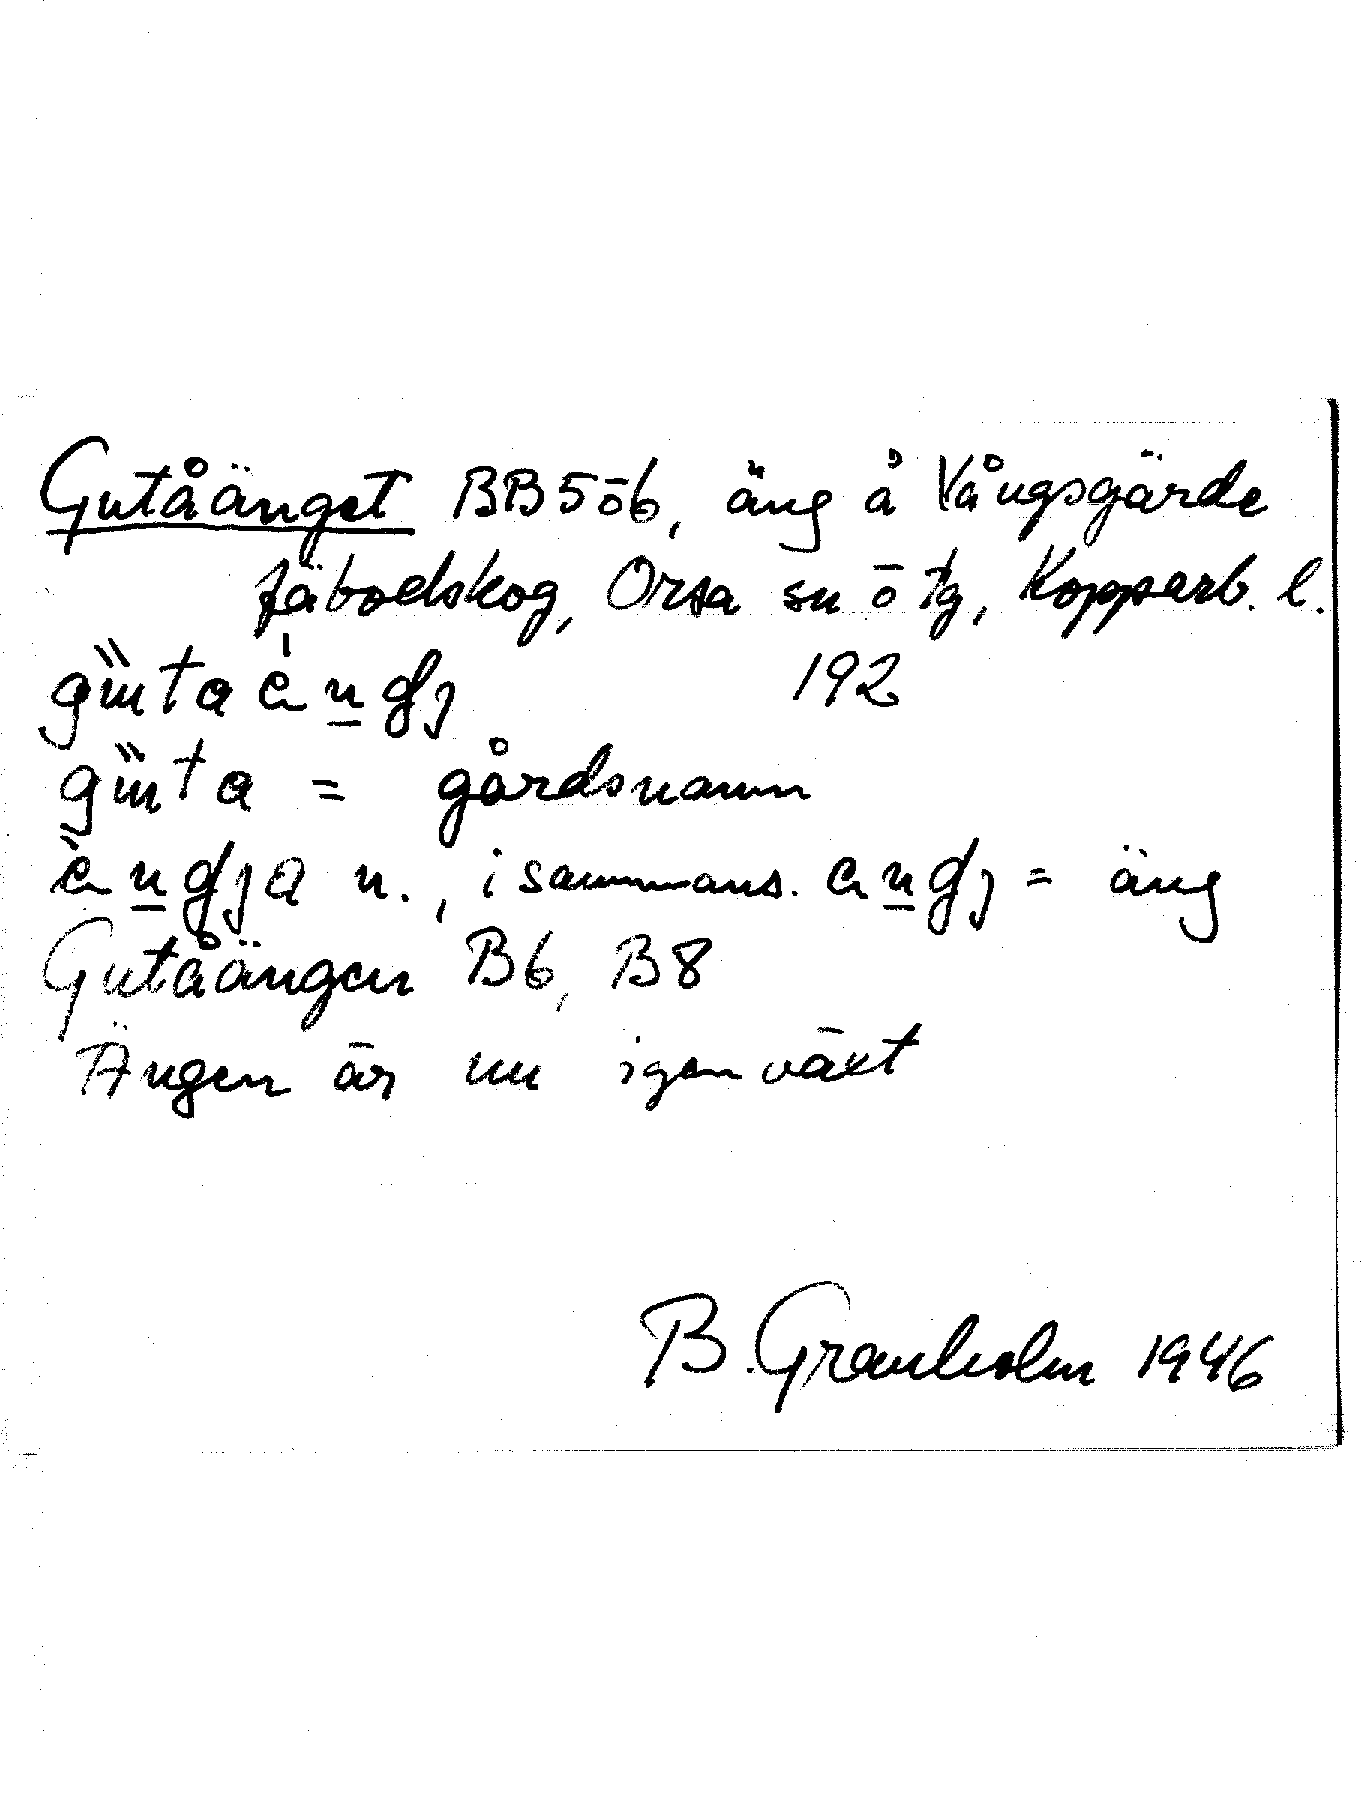 Gutåänget BB5ō6, äng å Vångsgärde
fäbodskog, Orsa sn ō tg, Kopparb. l.
192
= gårdsnamn
n., i sammans. = äng
Gutåängen B6, B8
Ängen är nu igenväxt
B. Granholm 1946